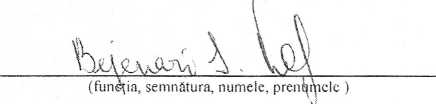 Bejenari S.
(funcția, semnătura, numele, prenumele )